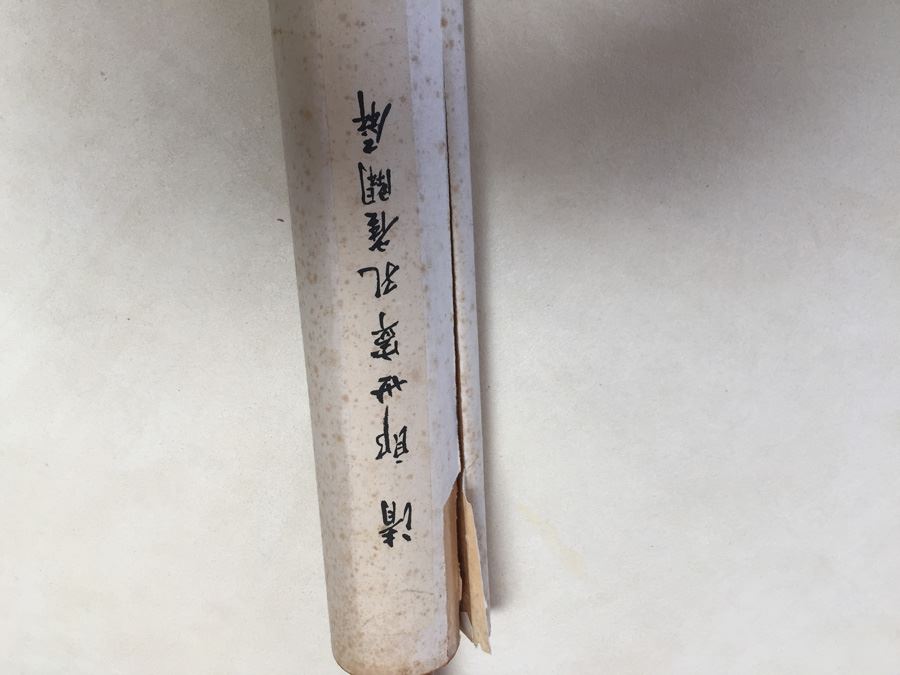 清郎世寧孔雀開屏